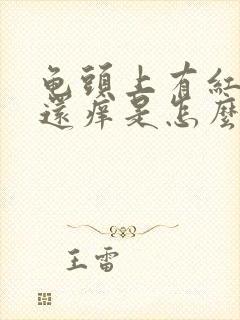 龟頭上有紅
還痒是怎麼
王雷